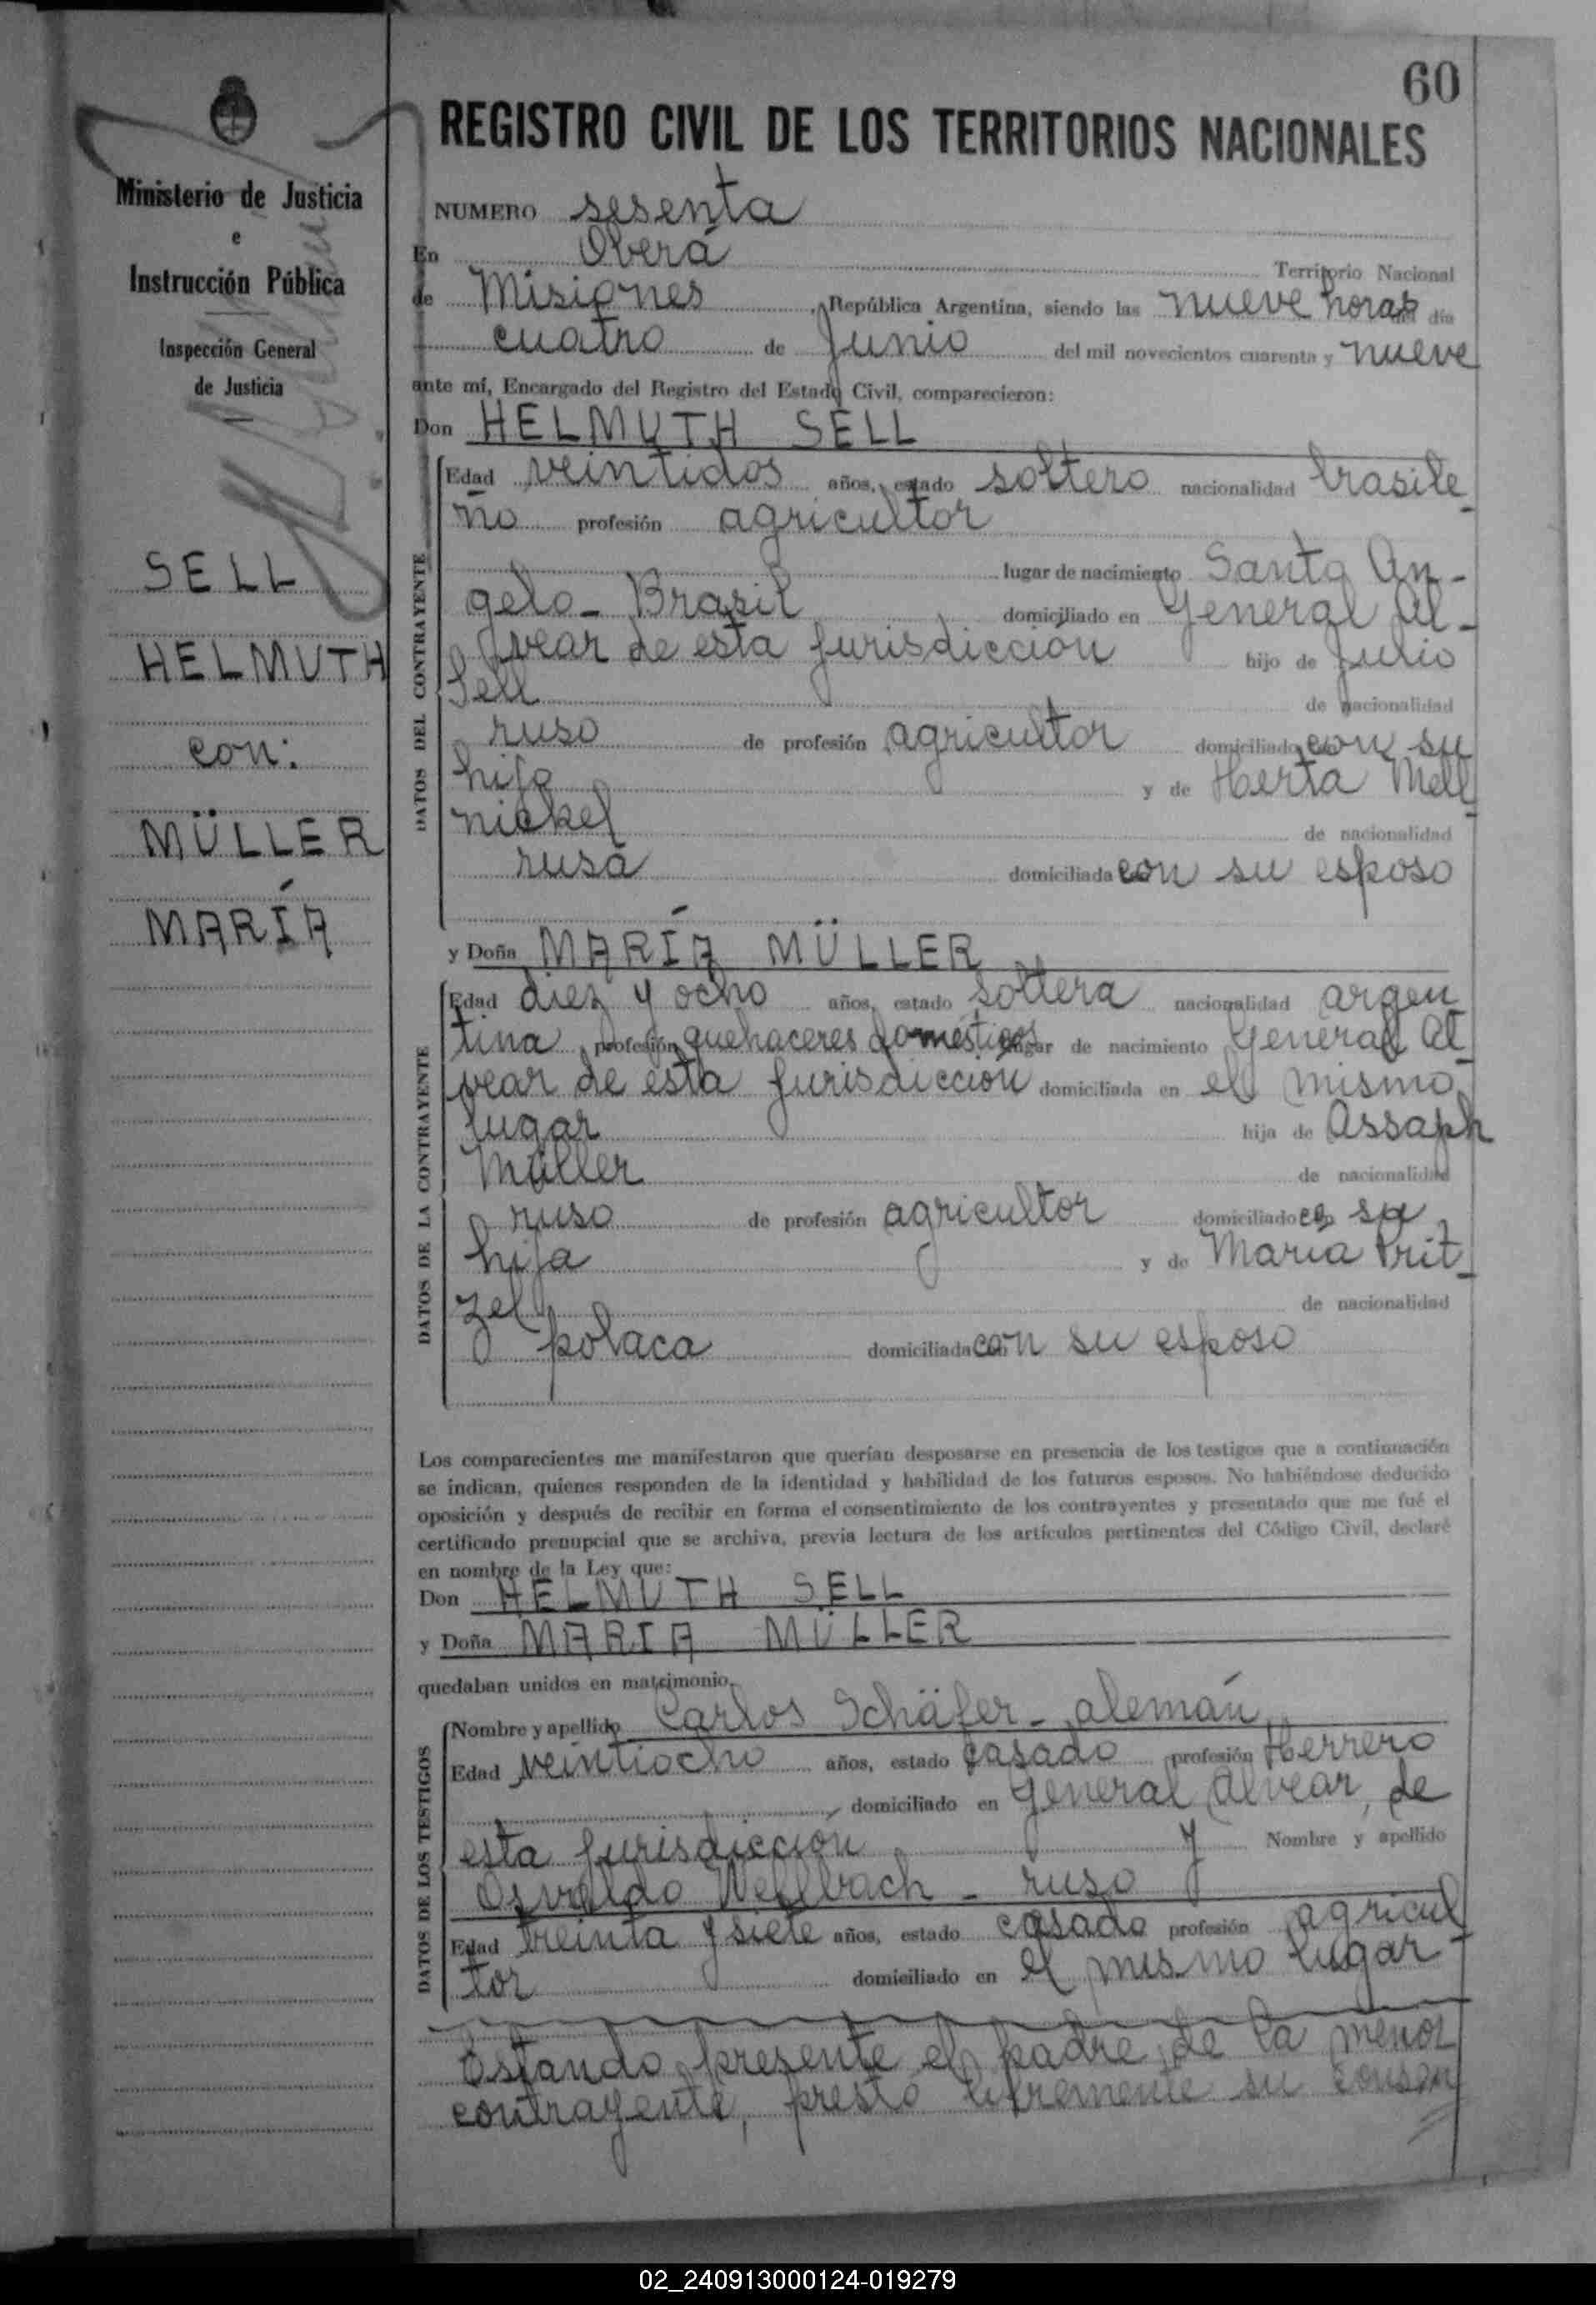 60
REGISTRO CIVIL DE LOS TERRITORIOS NACIONALES
Ministerio de Justicia
e
Instrucción Pública
Inspección General
de Justicia
SELL
HELMUTH
con:
MÜLLER
MARÍA
NUMERO sesenta
En Oberá Territorio Nacional
de Misiones, República Argentina, siendo las nueve horas del día
cuatro de Junio del mil novecientos cuarenta y nueve
ante mí, Encargado del Registro del Estado Civil, comparecieron:
Don HELMUTH SELL
DATOS DEL CONTRAYENTE
Edad veintidos años, estado soltero nacionalidad brasile-
ño profesión agricultor
lugar de nacimiento Santo An-
gelo - Brasil domiciliado en General Al-
vear de esta jurisdicción hijo de Julio
Sell de nacionalidad
ruso de profesión agricultor domiciliado con su
hijo y de Herta Mell-
nickel de nacionalidad
rusa domiciliada con su esposo
y Doña MARÍA MÜLLER
DATOS DE LA CONTRAYENTE
Edad diez y ocho años, estado soltera nacionalidad argen-
tina profesión quehaceres domésticos lugar de nacimiento General Al-
vear de esta jurisdiccion domiciliada en el mismo
lugar hija de Assaph
Müller de nacionalidad
ruso de profesión agricultor domiciliado con su
hija y de María Prit-
zel de nacionalidad
polaca domiciliada con su esposo
Los comparecientes me manifestaron que querían desposarse en presencia de los testigos que a continuación
se indican, quienes responden de la identidad y habilidad de los futuros esposos. No habiéndose deducido
oposición y después de recibir en forma el consentimiento de los contrayentes y presentado que me fué el
certificado prenupcial que se archiva, previa lectura de los artículos pertinentes del Código Civil, declaré
en nombre de la Ley que:
Don HELMUTH SELL
y Doña MARIA MÜLLER
quedaban unidos en matrimonio.
DATOS DE LOS TESTIGOS
Nombre y apellido Carlos Schäfer - alemán
Edad veintiocho años, estado casado profesión Herrero
domiciliado en General Alvear, de
esta jurisdicción y Nombre y apellido
Osvaldo Wellbach - ruso
Edad treinta y siete años, estado casado profesión agricul-
tor domiciliado en el mismo lugar
Estando presente el padre de la menor
contrayente, prestó libremente su consen
02_240913000124-019279